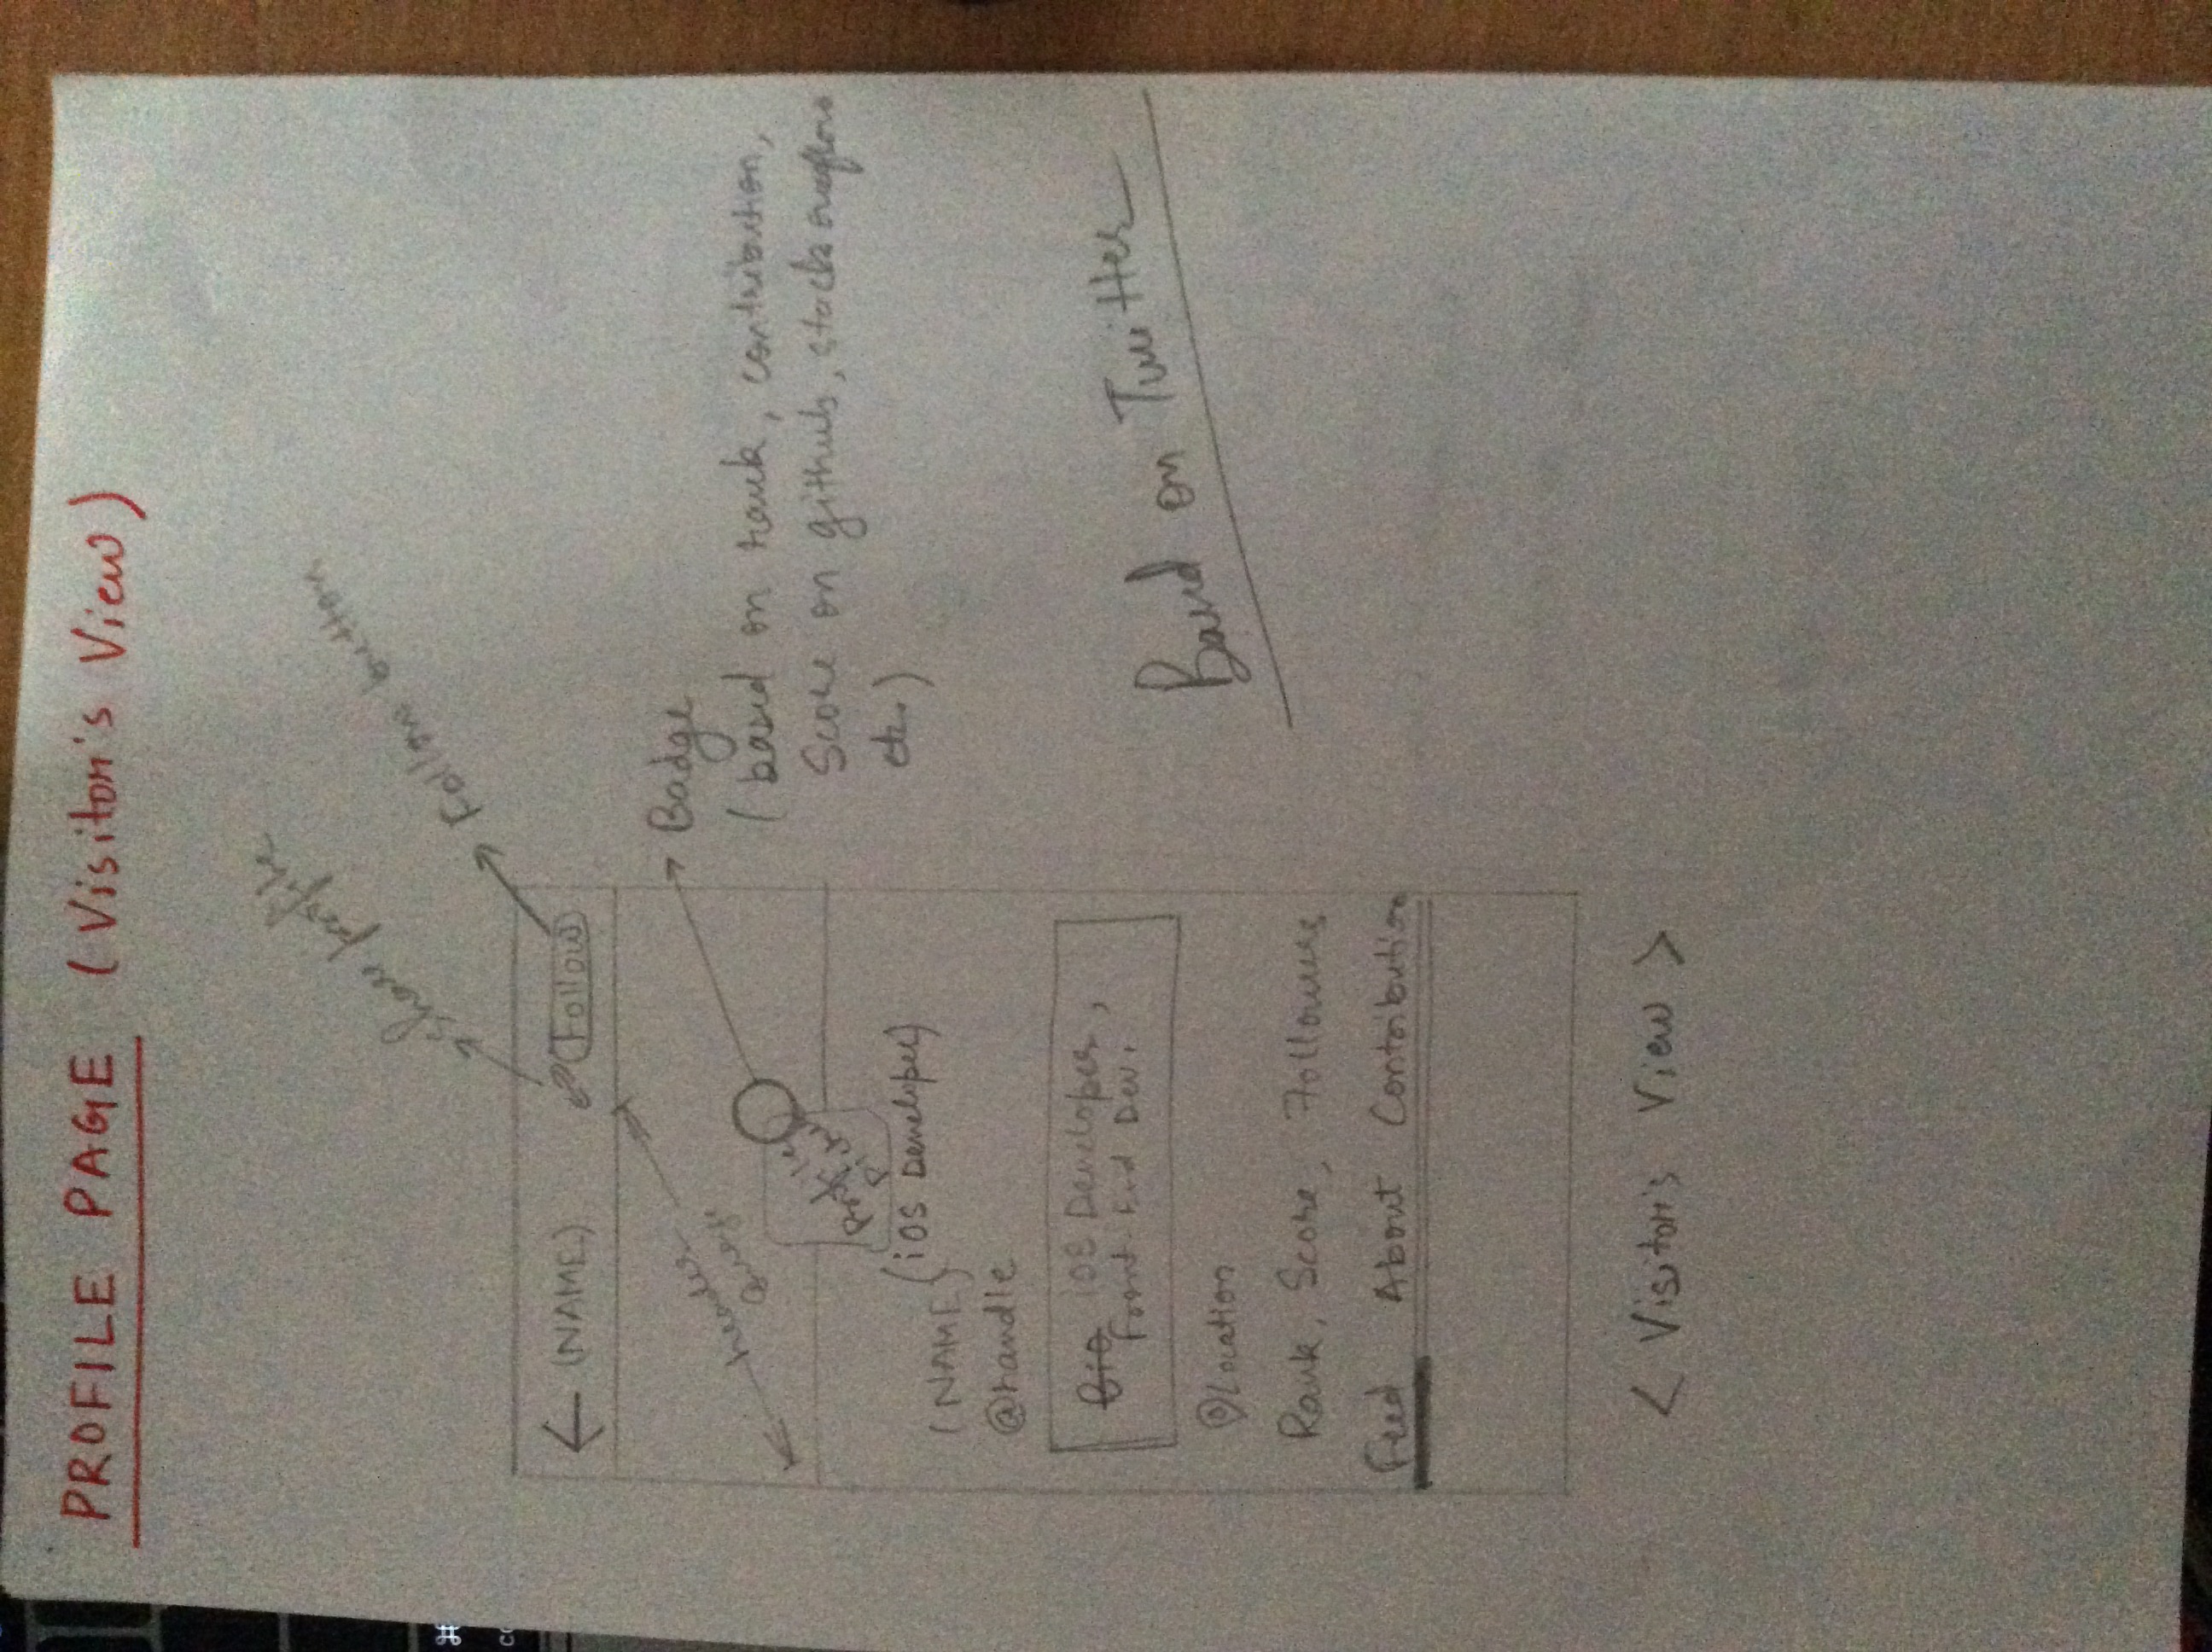 PROFILE PAGE (Visitor's View)
Share profile
Follow button
← (NAME) Follow
header
Badge
(based on rank, contribution,
Score on github, stack overflow
etc.)
(NAME) (iOS Developer)
@handle
Bio iOS Developer,
Front End Dev.
Location
Rank, Score, Followers
Feed About Contribution
Based on Twitter
< Visitor's View >
⌘